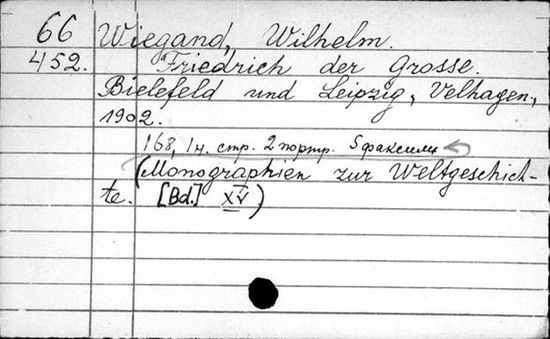 66 Wiegand, Wilhelm.
452. Friedrich der Grosse.
Bielefeld und Leipzig, Velhagen,
1902.
168, 1 н. стр. 2 портр. 5 факсимили
(Monographien zur Weltgeschich-
te. [Bd.] XV)